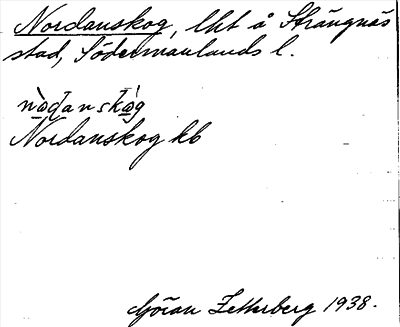 Nordanskog, lht å Strängnäs
stad, Södermanlands l.
nɷ̀ḍanskɷ̀g
Nordanskog kb
Göran Zetterberg 1938.